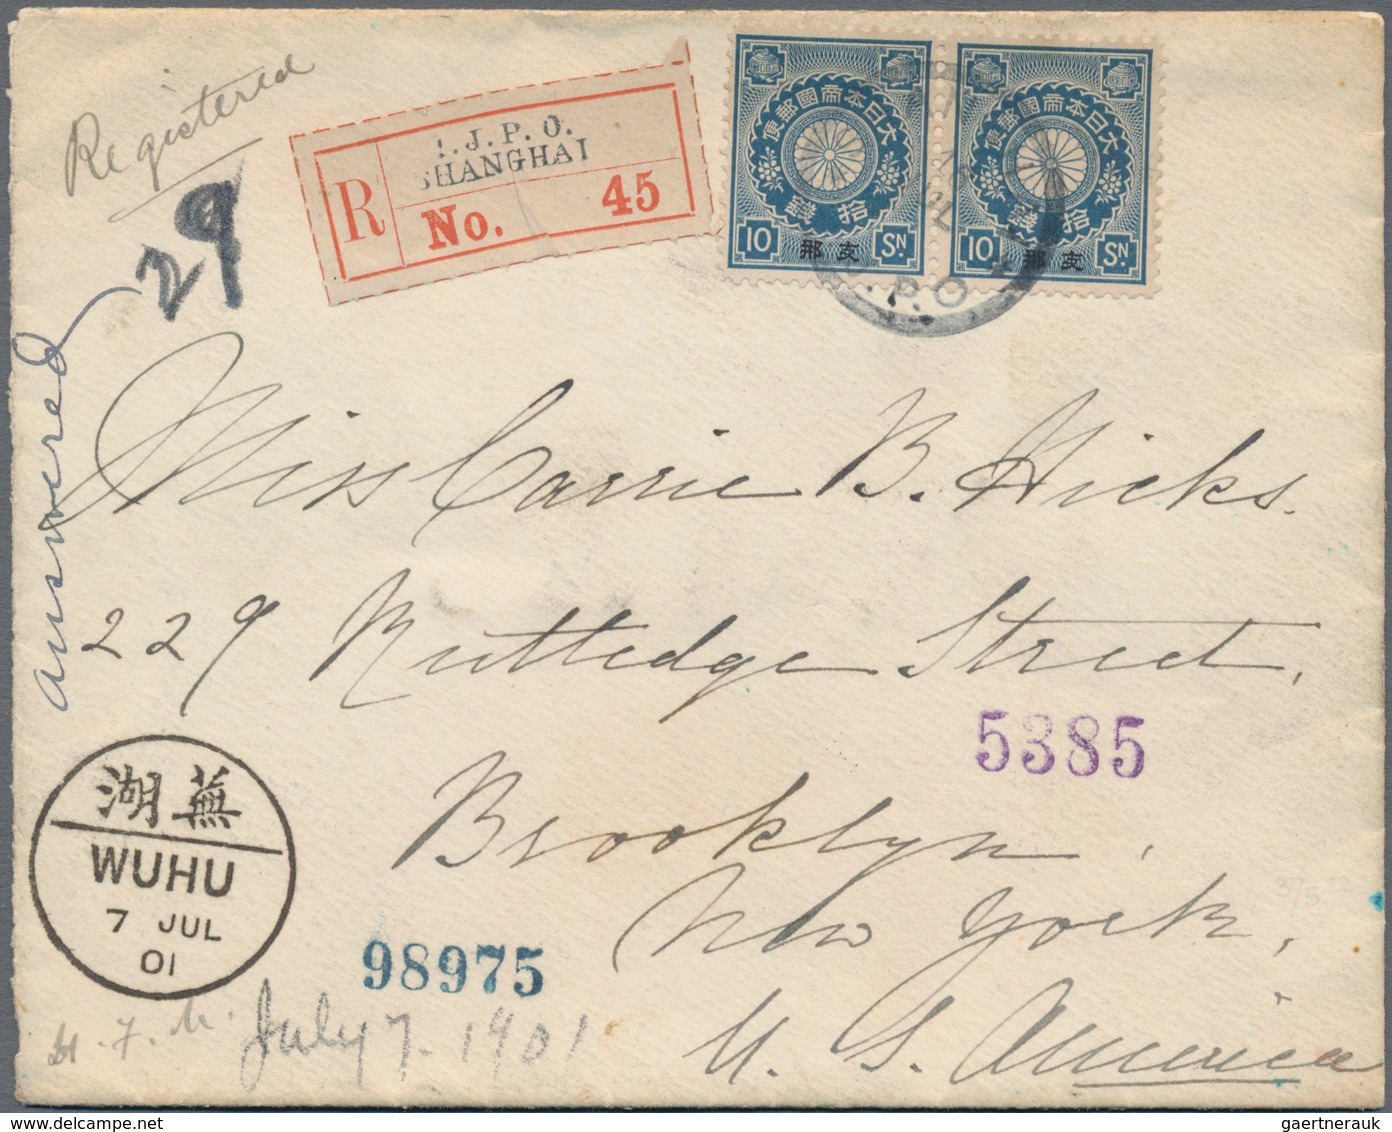 Registered
29
answered
.J.P.O.
SHANGHAI
R
No. 45
大日本帝國郵便
拾錢
支那
10 Sn.
大日本帝國郵便
拾錢
支那
10 Sn.
J.P.O.
Miss Carrie B. Hicks.
229 Rutledge Street,
5385
Brooklyn,
New York,
U. S. America
蕪湖
WUHU
7 JUL
01
98975
July 7. 1901
gaertnerauk